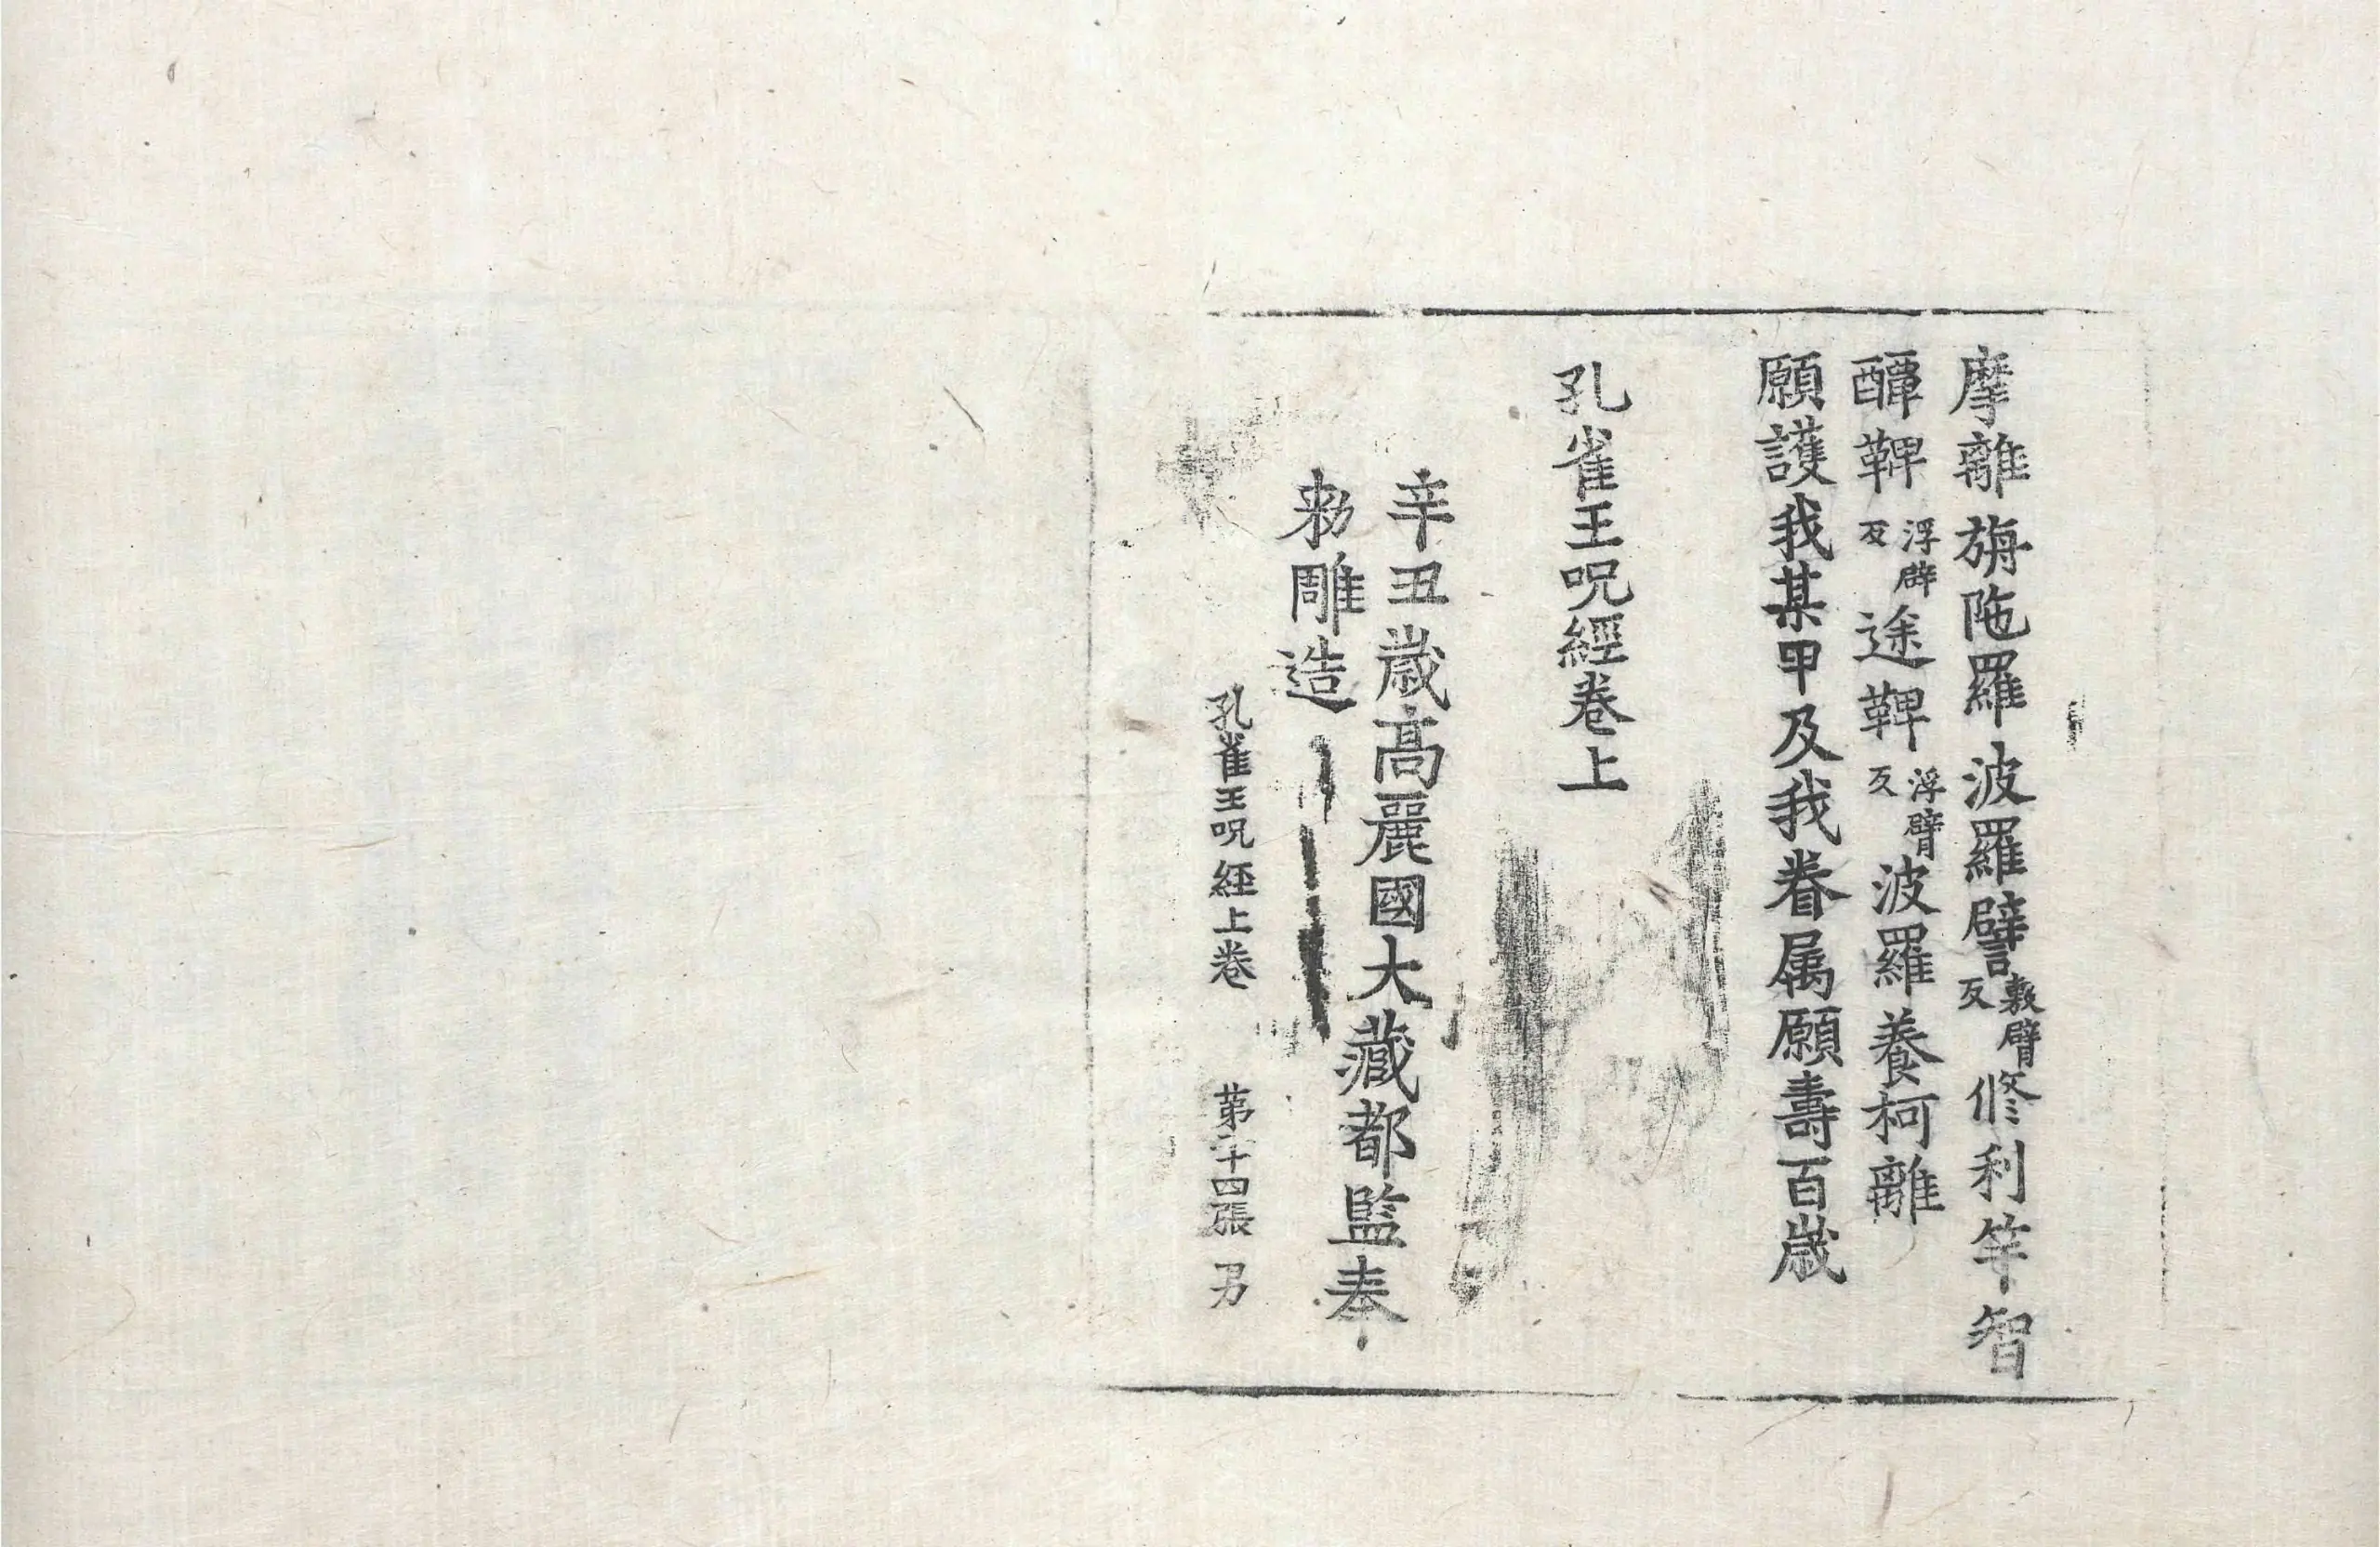 摩離旃陁羅波羅譬敷臂反修利竿智
䣶鞞浮辟反途鞞浮臂反波羅養柯離
願護我某甲及我眷属願壽百歲
孔雀王呪經卷上
辛丑歲高麗國大藏都監奉
勑雕造
孔雀王呪經上卷 苐二十四張 男